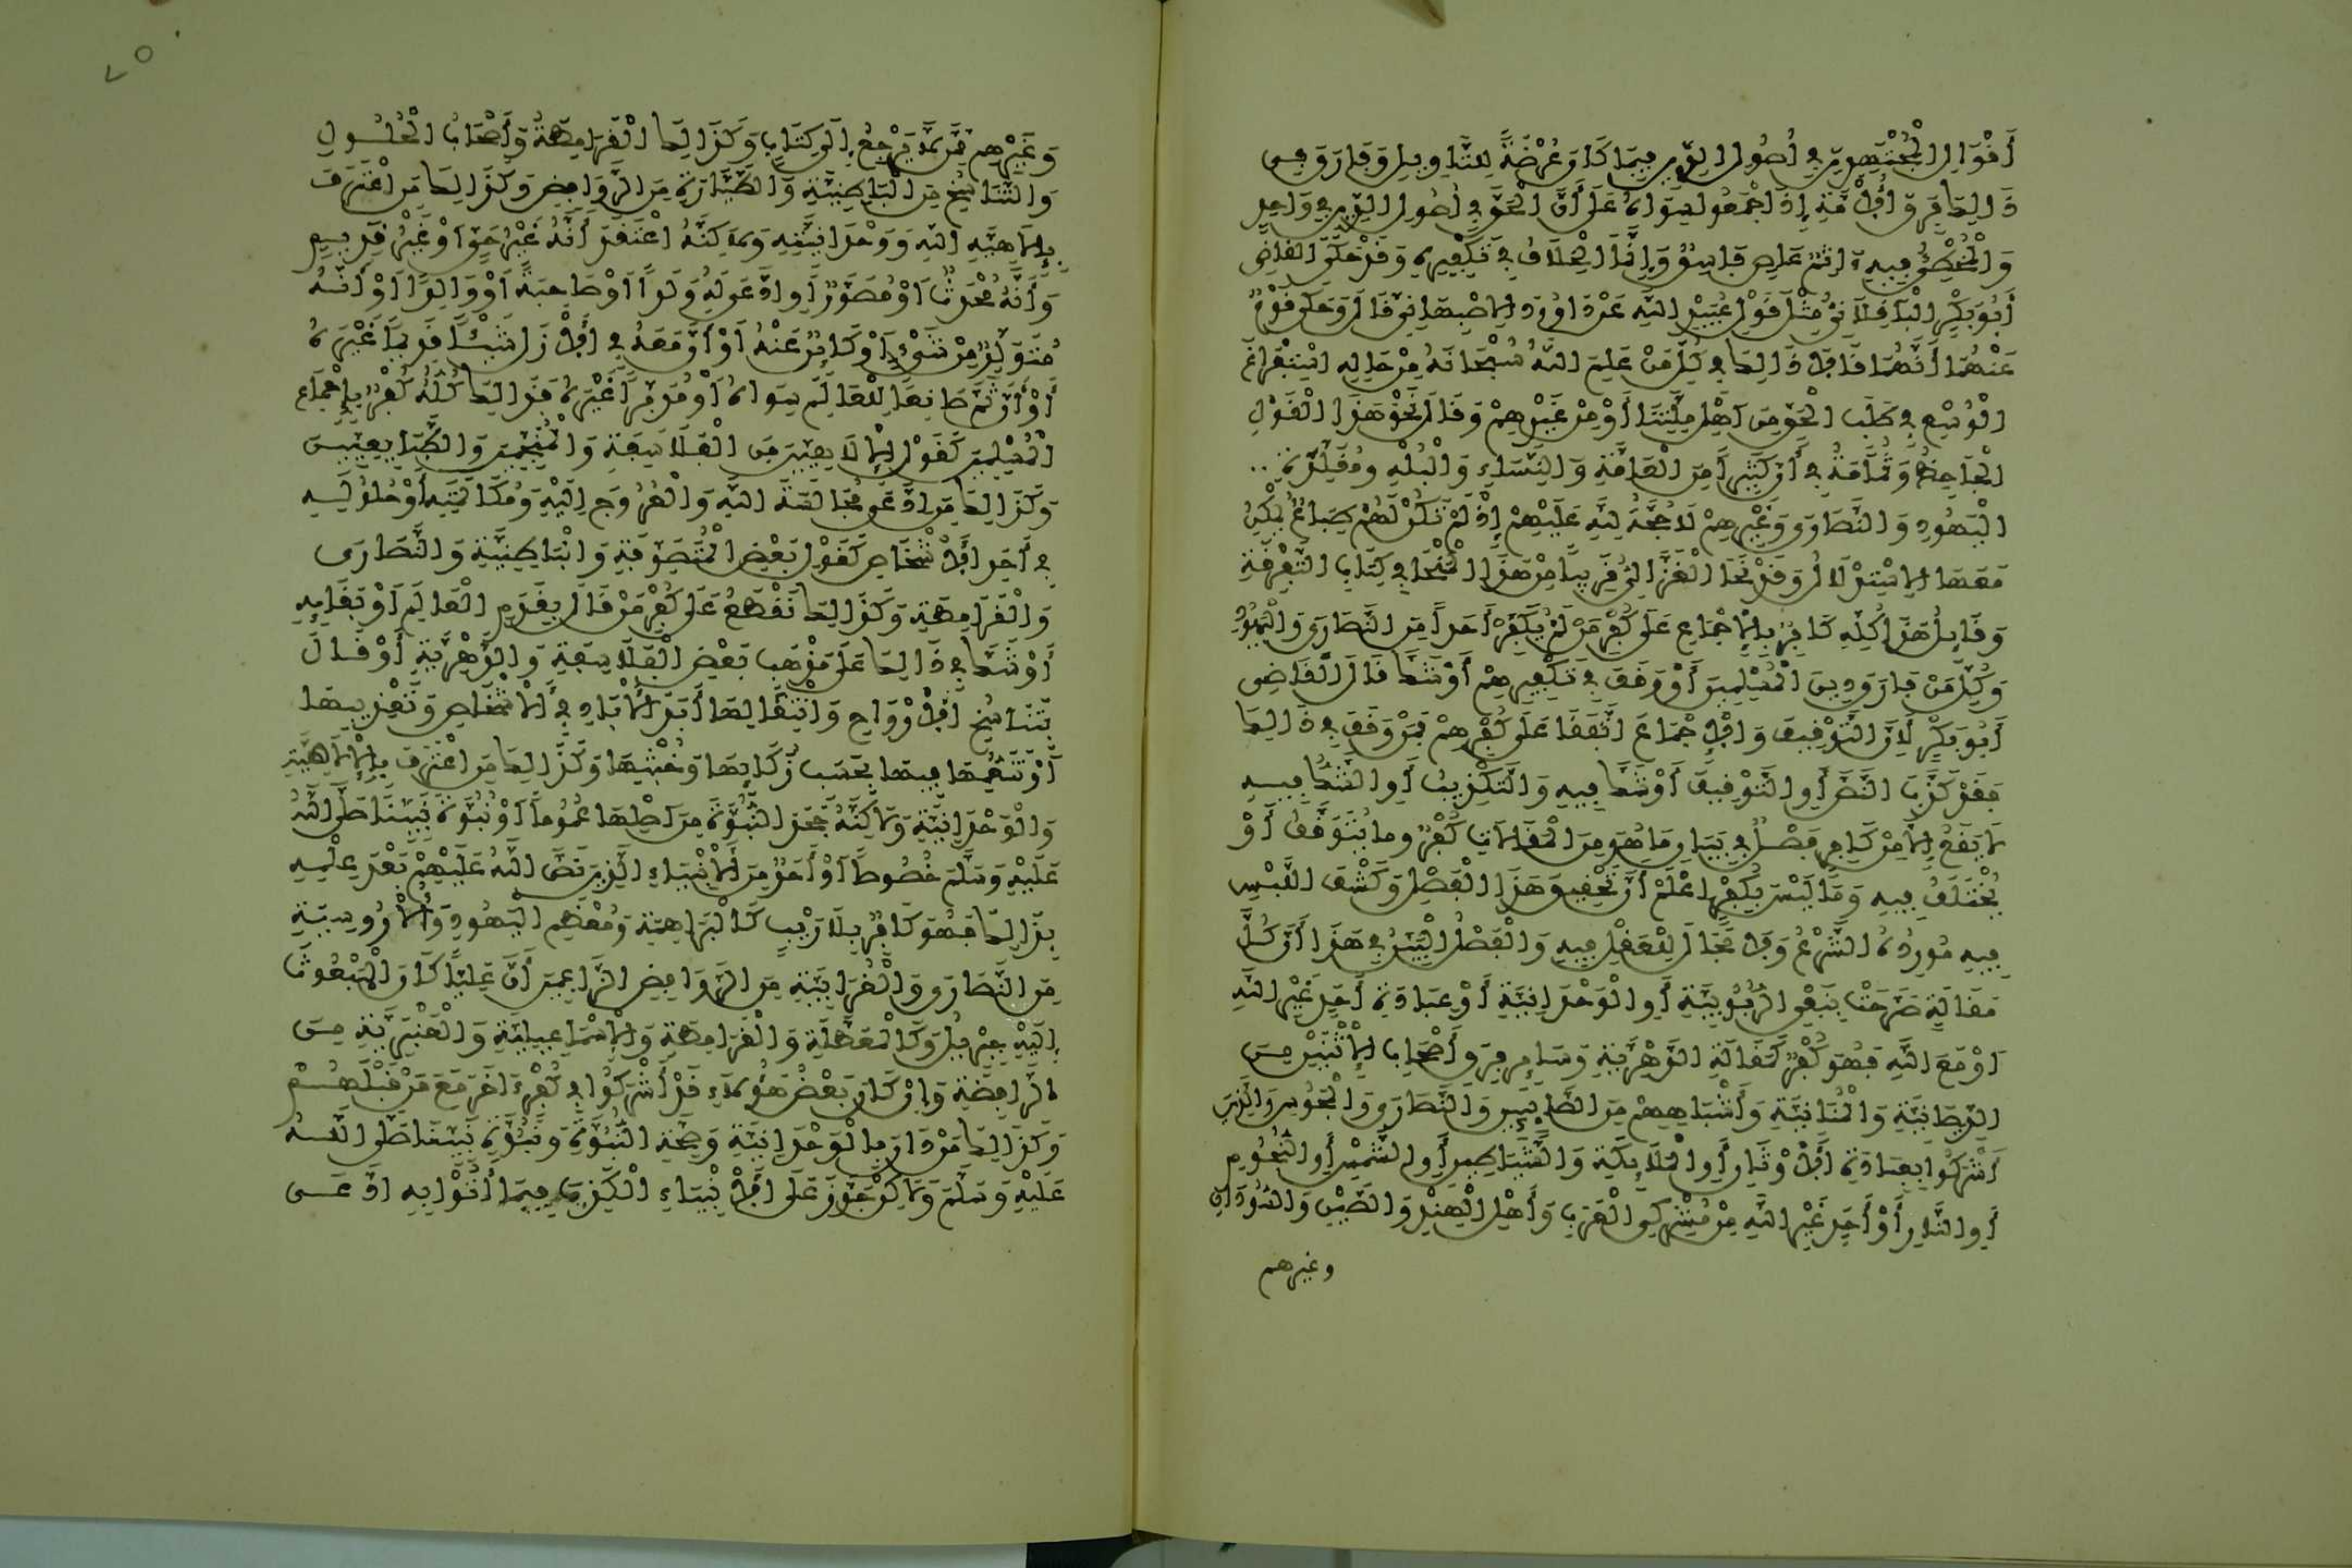 أَقْوَالِ الْمُجْتَهِدِينَ فِي أُصُولِ الدِّينِ فِيمَا كَانَ عُرْضَةً لِلتَّاوِيلِ وَفَارَقَ فِي
ذَالِكَ فِرَقَ الْأُمَّةِ إِذَ اجْمَعُوا سِوَاهُ عَلَى أَنَّ الْحَقَّ فِي أُصُولِ الدِّينِ فِي وَاحِدٍ
وَالْمُخْطِئُ فِيهِ ءَاثِمٌ عَاصٍ فَاسِقٌ وَإِنَّمَا الْخِلَافُ فِي تَكْفِيرِهِ وَقَدْ حَكَى الْقَاضِي
أَبُو بَكْرٍ الْبَاقِلَّانِيُّ مِثْلَ قَوْلِ عُبَيْدِ اللَّهِ عَنْ دَاوُودَ الِاصْبَهَانِيِّ قَالَ وَحَكَى قَوْمٌ
عَنْهُمَا أَنَّهُمَا قَالَا ذَالِكَ فِي كُلِّ مَنْ عَلِمَ اللَّهُ سُبْحَانَهُ مِنْ حَالِهِ اسْتِفْرَاغَ
الْوُسْعِ فِي طَلَبِ الْحَقِّ مِنَ اهْلِ مِلَّتِنَا أَوْ مِنْ غَيْرِهِمْ وَقَالَ نَحْوَ هَذَا الْقَوْلِ
الْجَاحِظُ وَثُمَامَةُ فِي أَنَّ كَثِيراً مِنَ الْعَامَّةِ وَالنِّسَاءِ وَالْبُلْهِ وَمُقَلِّدَةِ
الْيَهُودِ وَالنَّصَارَى وَغَيْرِهِمْ لَا حُجَّةَ لِلَّهِ عَلَيْهِمْ إِذْ لَمْ تَكُنْ لَهُمْ طِبَاعٌ يُمْكِنُ
مَعَهَا الِاسْتِدْلَالُ وَقَدْ نَحَا الْغَزَّالِيُّ قَرِيباً مِنْ هَذَا الْمَنْحَا فِي كِتَابِ التَّفْرِقَةِ
وَقَائِلُ هَذَا كُلِّهِ كَافِرٌ بِالِاجْمَاعِ عَلَى كُفْرِ مَنْ لَمْ يُكَفِّرْ أَحَداً مِنَ النَّصَارَى وَالْيَهُودِ
وَكُلِّ مَنْ فَارَقَ دِينَ الْمُسْلِمِينَ أَوْ وَقَفَ فِي تَكْفِيرِهِمْ أَوْ شَكَّ قَالَ الْقَاضِي
أَبُو بَكْرٍ لِأَنَّ التَّوْقِيفَ وَالِاجْمَاعَ اتَّفَقَا عَلَى كُفْرِهِمْ فَمَنْ وَقَفَ فِي ذَالِكَ
فَقَدْ كَذَّبَ النَّصَّ أَوِ التَّوْقِيفَ أَوْ شَكَّ فِيهِ وَالتَّكْذِيبُ أَوِ الشَّكُّ فِيهِ
لَا يَقَعُ إِلَّا مِنْ كَافِرٍ فَصْلٌ فِي بَيَانِ مَا هُوَ مِنَ الْمَقَالَاتِ كُفْرٌ وما يُتَوَقَّفُ أَوْ
يُخْتَلَفُ فِيهِ وَمَا لَيْسَ بِكُفْرٍ اعْلَمْ أَنَّ تَحْقِيقَ هَذَا الْفَصْلِ وَكَشْفَ اللَّبْسِ
فِيهِ مُورِدُهُ الشَّرْعُ وَلَا مَجَالَ لِلْعَقْلِ فِيهِ وَالْفَصْلُ الْبَيِّنُ فِي هَذَا أَنَّ كُلَّ
مَقَالَةٍ صَرَّحَتْ بِنَفْيِ الرُّبُوبِيَّةِ أَوِ الْوَحْدَانِيَّةِ أَوْ عِبَادَةِ أَحَدٍ غَيْرِ اللَّهِ
اَوْ مَعَ اللَّهِ فَهُوَ كُفْرٌ كَمَقَالَةِ الدَّهْرِيَّةِ وَسَايِرِ فِرَقِ أَصْحَابِ الِاثْنَيْنِ مِنَ
الدَّيْصَانِيَّةِ وَالْمَانِيَّةِ وَأَشْبَاهِهِمْ مِنَ الصَّابِيِينَ وَالنَّصَارَى وَالْمَجُوسِ وَالَّذِينَ
أَشْرَكُوا بِعِبَادَةِ الَاوْثَانِ أَوِ الْمَلَايِكَةِ وَالشَّيَاطِينِ أَوِ الشَّمْسِ أَوِ النُّجُومِ
أَوِ النَّارِ أَوْ أَحَدٍ غَيْرِ اللَّهِ مِنْ مُشْرِكِي الْعَرَبِ وَأَهْلِ الْهِنْدِ وَالصِّينِ وَالسُّودَانِ
وغيرهم
٧٥
وَغَيْرِهِمْ مِمَّنْ لَا يَرْجِعُ إِلَى كِتَابٍ وَكَذَالِكَ الْقَرَامِطَةُ وَأَصْحَابُ الْحُلُولِ
وَالتَّنَاسُخِ مِنَ الْبَاطِنِيَّةِ وَالطَّيَّارَةِ مِنَ الرَّوَافِضِ وَكَذَالِكَ مَنِ اعْتَرَفَ
بِإِلَاهِيَّةِ اللَّهِ وَوَحْدَانِيَّتِهِ وَلَاكِنَّهُ اعْتَقَدَ أَنَّهُ غَيْرُ حَيٍّ اَوْ غَيْرُ قَدِيمٍ
وَأَنَّهُ مُحْدَثٌ اَوْ مُصَوَّرٌ أَوِ ادَّعَى لَهُ وَلَداً اَوْ صَاحِبَةً اَوْ وَالِداً اَوْ أَنَّهُ
مُتَوَلِّدٌ مِنْ شَيْءٍ اَوْ كَائِنٌ عَنْهُ اَوْ أَنَّ مَعَهُ فِي الَازَلِ شَيْئاً قَدِيماً غَيْرَهُ
أَوْ أَنَّ ثَمَّ صَانِعاً لِلْعَالَمِ سِوَاهُ اَوْ مُدَبِّراً غَيْرَهُ فَذَالِكَ كُلُّهُ كُفْرٌ بِإِجْمَاعِ
الْمُسْلِمِينَ كَقَوْلِ الِالَاهِيِّينَ مِنَ الْفَلَاسِفَةِ وَالْمُنَجِّمِينَ وَالطَّبَايِعِيِّينَ
وَكَذَالِكَ مَنِ ادَّعَى مُجَالَسَةَ اللَّهِ وَالْعُرُوجَ إِلَيْهِ وَمُكَالَمَتَهُ أَوْ حُلُولَهُ
فِي أَحَدِ الَاشْخَاصِ كَقَوْلِ بَعْضِ الْمُتَصَوِّفَةِ وَالْبَاطِنِيَّةِ وَالنَّصَارَى
وَالْقَرَامِطَةِ وَكَذَالِكَ نَقْطَعُ عَلَى كُفْرِ مَنْ قَالَ بِقِدَمِ الْعَالَمِ اَوْ بَقَايِهِ
أَوْ شَكَّ فِي ذَالِكَ عَلَى مَذْهَبِ بَعْضِ الْفَلَاسِفَةِ وَالدَّهْرِيَّةِ أَوْ قَالَ
بِتَنَاسُخِ الَارْوَاحِ وَانْتِقَالِهَا أَبَدَ الَابَادِ فِي الَاشْخَاصِ وَتَعْذِيبِهَا
أَوْ تَنَعُّمِهَا فِيهَا بِحَسَبِ زَكَائِهَا وَخُبْثِهَا وَكَذَالِكَ مَنِ اعْتَرَفَ بِالِالَاهِيَّةِ
وَالْوَحْدَانِيَّةِ وَلَاكِنَّهُ جَحَدَ النُّبُوَّةَ مِنَ اصْلِهَا عُمُوماً اَوْ نُبُوَّةَ نَبِيِّنَا صَلَّى اللَّهُ
عَلَيْهِ وَسَلَّمَ خُصُوصاً اَوْ أَحَدٍ مِنَ الَانْبِيَاءِ الَّذِينَ نَصَّ اللَّهُ عَلَيْهِمْ بَعْدَ عِلْمِهِ
بِذَالِكَ فَهُوَ كَافِرٌ بِلَا رَيْبٍ كَالْبَرَاهِمَةِ وَمُعْظَمِ الْيَهُودِ وَالُارُوسِيَّةِ
مِنَ النَّصَارَى وَالْغُرَابِيَّةِ مِنَ الرَّوَافِضِ الزَّاعِمِينَ أَنَّ عَلِيّاً كَانَ الْمَبْعُوثَ
إِلَيْهِ جِبْرِيلُ وَكَالْمُعَطِّلَةِ وَالْقَرَامِطَةِ وَالِاسْمَاعِيلِيَّةِ وَالْعَنْبَرِيَّةِ مِنَ
الرَّافِضَةِ وَإِنْ كَانَ بَعْضُ هَؤُلَاءِ قَدْ أَشْرَكُوا فِي كُفْرٍ ءَاخَرَ مَعَ مَنْ قَبْلَهُمْ
وَكَذَالِكَ مَنْ دَانَ بِالْوَحْدَانِيَّةِ وَصِحَّةِ النُّبُوَّةِ وَنُبُوَّةِ نَبِيِّنَا صَلَّى اللَّهُ
عَلَيْهِ وَسَلَّمَ وَلَاكِنْ جَوَّزَ عَلَى الَانْبِيَاءِ الْكَذِبَ فِيمَا أَتَوْا بِهِ ادَّعَى